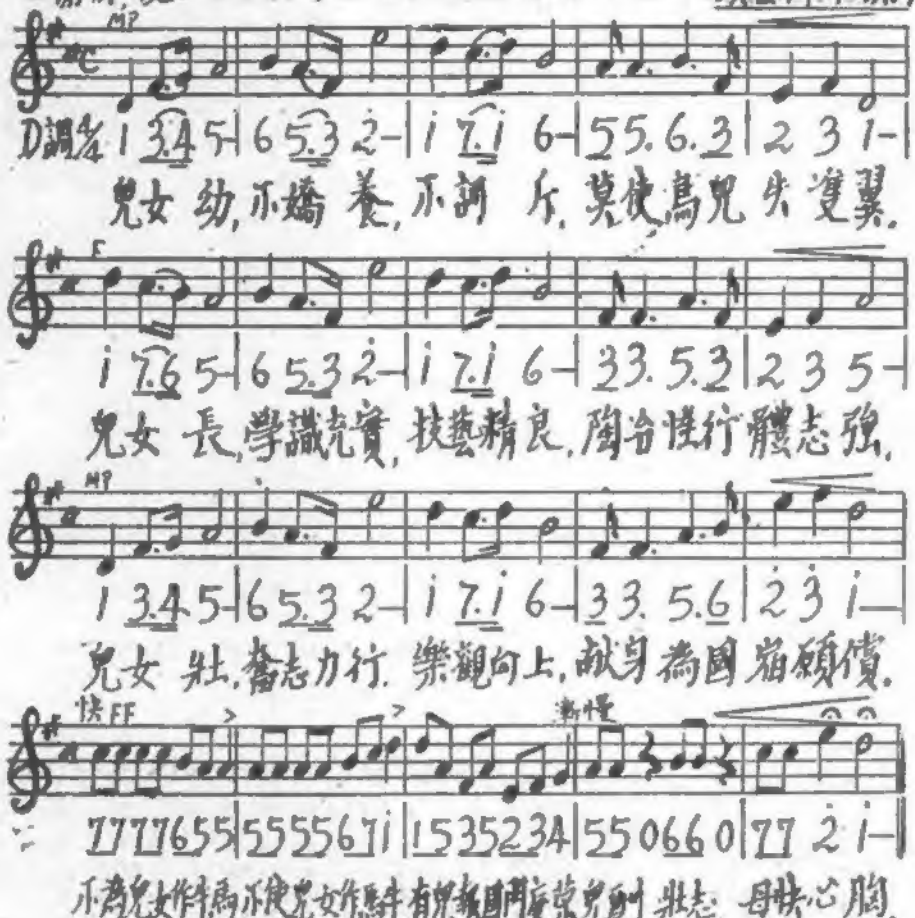 MP
D調 4/4 1 3.4 5-|6 5.3 2̇-|i 7.i 6-|5 5. 6. 3|2 3 1-
兒女 幼,不嬌 養,不訓 斥,莫使鳥兒 失 雙翼.
F
i 7.6 5-|6 5.3 2̇-|i 7.i 6-|3 3. 5. 3|2 3 5-
兒女 長,學識充實,技藝精良,陶冶性行體志強,
MP
1 3.4 5-|6 5.3 2-|i 7.i 6-|3 3. 5.6|2̇ 3̇ i-
兒女 壯,奮志力行.樂觀向上,献身為國宿願償.
快 FF > > 漸慢
7777655|5555671̇|1535234|550660|77 2̇ i-
不為兒女作牛馬不使兒女作馬牛有兒報國門庭榮兒 壯志 母快心胸